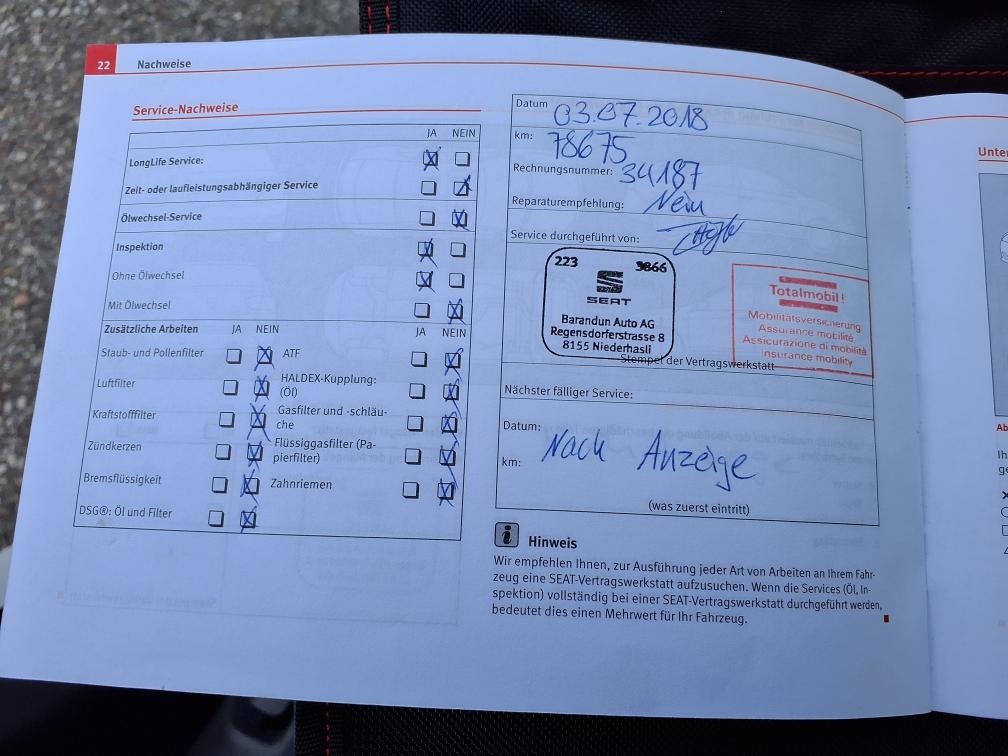 22 Nachweise
Service-Nachweise
JA NEIN
LongLife Service:
Zeit- oder laufleistungsabhängiger Service
Ölwechsel-Service
Inspektion
Ohne Ölwechsel
Mit Ölwechsel
Zusätzliche Arbeiten JA NEIN JA NEIN
Staub- und Pollenfilter ATF
Luftfilter HALDEX-Kupplung:
(Öl)
Kraftstofffilter Gasfilter und -schläu-
che
Zündkerzen Flüssiggasfilter (Pa-
pierfilter)
Bremsflüssigkeit Zahnriemen
DSG®: Öl und Filter
Datum 03.07.2018
km: 78675
Rechnungsnummer: 34187
Reparaturempfehlung: Nein
Service durchgeführt von:
223 3866
SEAT
Barandun Auto AG
Regensdorferstrasse 8
8155 Niederhasli
Totalmobil!
Mobilitätsversicherung
Assurance mobilité
Assicurazione di mobilità
Insurance mobility
Stempel der Vertragswerkstatt
Nächster fälliger Service:
Datum: Nach Anzeige
km:
(was zuerst eintritt)
Hinweis
Wir empfehlen Ihnen, zur Ausführung jeder Art von Arbeiten an Ihrem Fahr-
zeug eine SEAT-Vertragswerkstatt aufzusuchen. Wenn die Services (Öl, In-
spektion) vollständig bei einer SEAT-Vertragswerkstatt durchgeführt werden,
bedeutet dies einen Mehrwert für Ihr Fahrzeug.